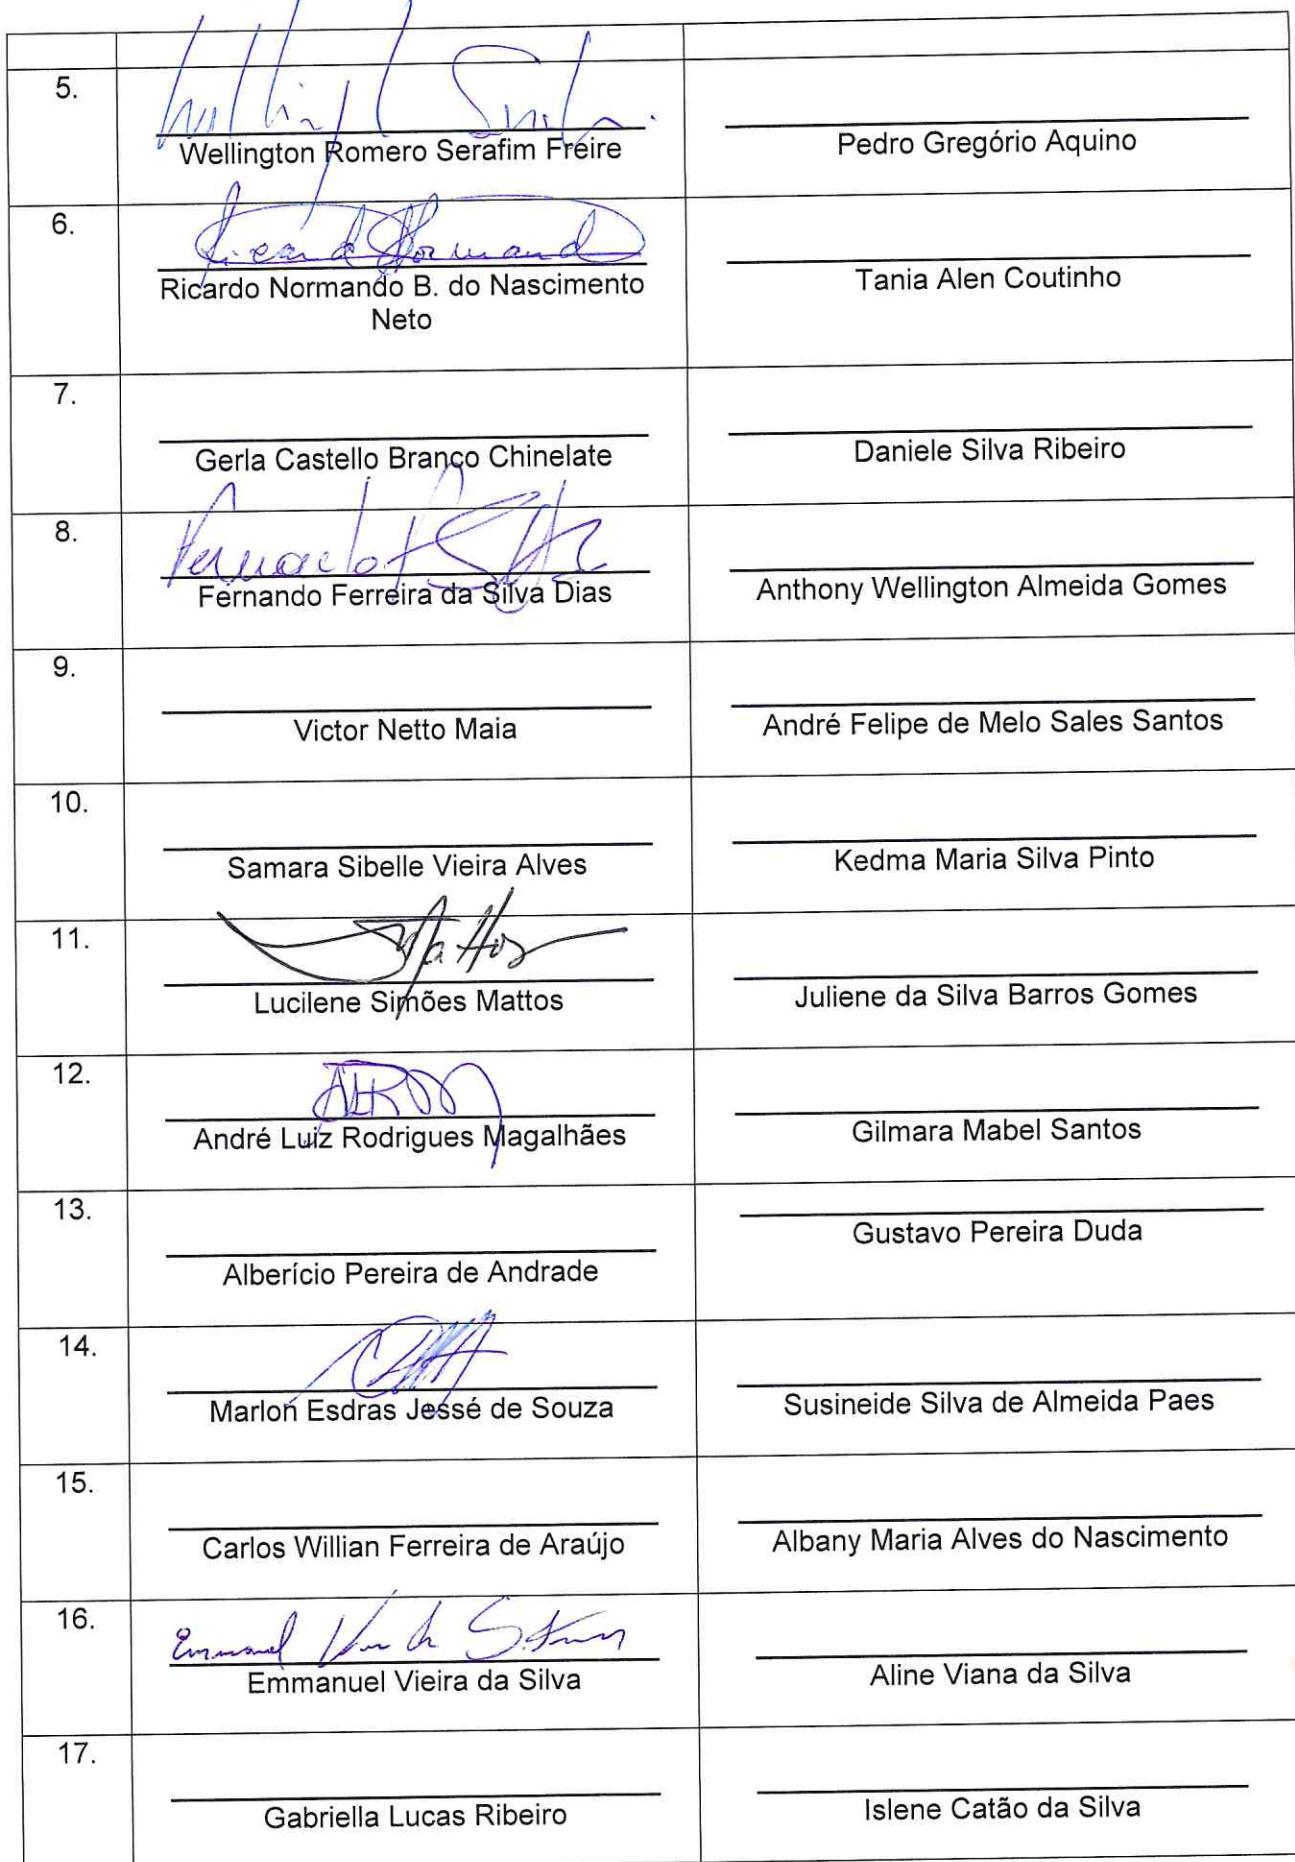 5.
Wellington Romero Serafim Freire
Pedro Gregório Aquino
6.
Ricardo Normand
Ricardo Normando B. do Nascimento
Neto
Tania Alen Coutinho
7.
Gerla Castello Branco Chinelate
Daniele Silva Ribeiro
8.
Fernando Ferreira da Silva Dias
Anthony Wellington Almeida Gomes
9.
Victor Netto Maia
André Felipe de Melo Sales Santos
10.
Samara Sibelle Vieira Alves
Kedma Maria Silva Pinto
11.
Mattos
Lucilene Simões Mattos
Juliene da Silva Barros Gomes
12.
André Luiz Rodrigues Magalhães
Gilmara Mabel Santos
13.
Alberício Pereira de Andrade
Gustavo Pereira Duda
14.
Marlon Esdras Jessé de Souza
Susineide Silva de Almeida Paes
15.
Carlos Willian Ferreira de Araújo
Albany Maria Alves do Nascimento
16.
Emmanuel
Emmanuel Vieira da Silva
Aline Viana da Silva
17.
Gabriella Lucas Ribeiro
Islene Catão da Silva